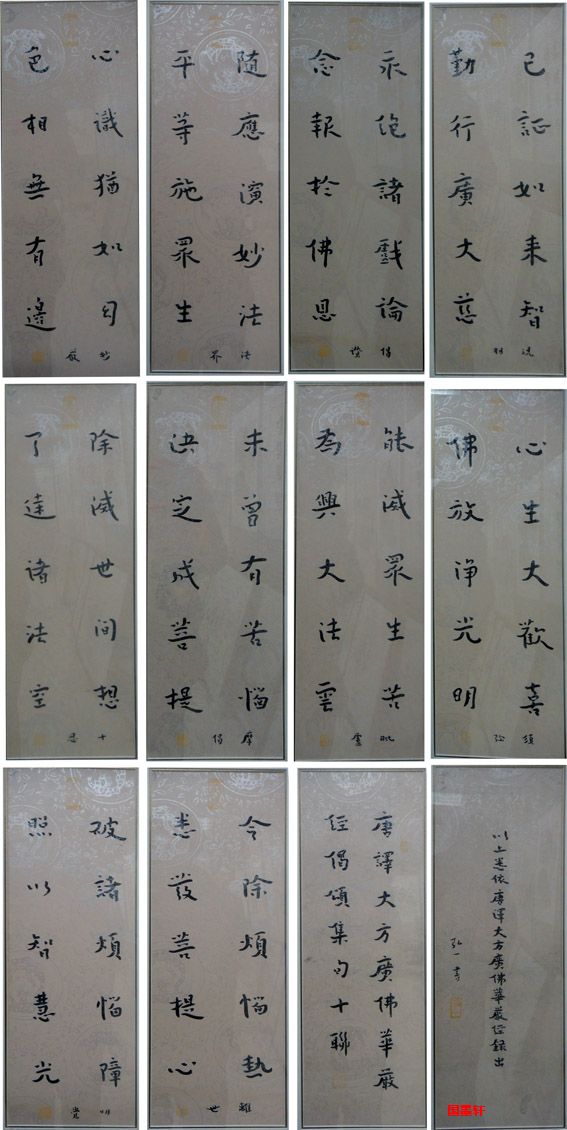 心識猶如幻
色相無有邊
妙嚴
隨應演妙法
平等施眾生
法界
永絕諸戲論
念報於佛恩
偈讚
已証如来智
勤行廣大慈
現相
除滅世間想
了達諸法空
十忍
未曾有苦惱
決定成菩提
能滅眾生苦
為興大法雲
毗盧
心生大歡喜
佛放淨光明
須彌
破諸煩惱障
照以智慧光
明覺
令除煩惱熱
悉發菩提心
離世
唐譯大方廣佛華嚴
經偈頌集句十聯
以上悉依唐譯大方廣佛華嚴經錄出
弘一書
国墨轩